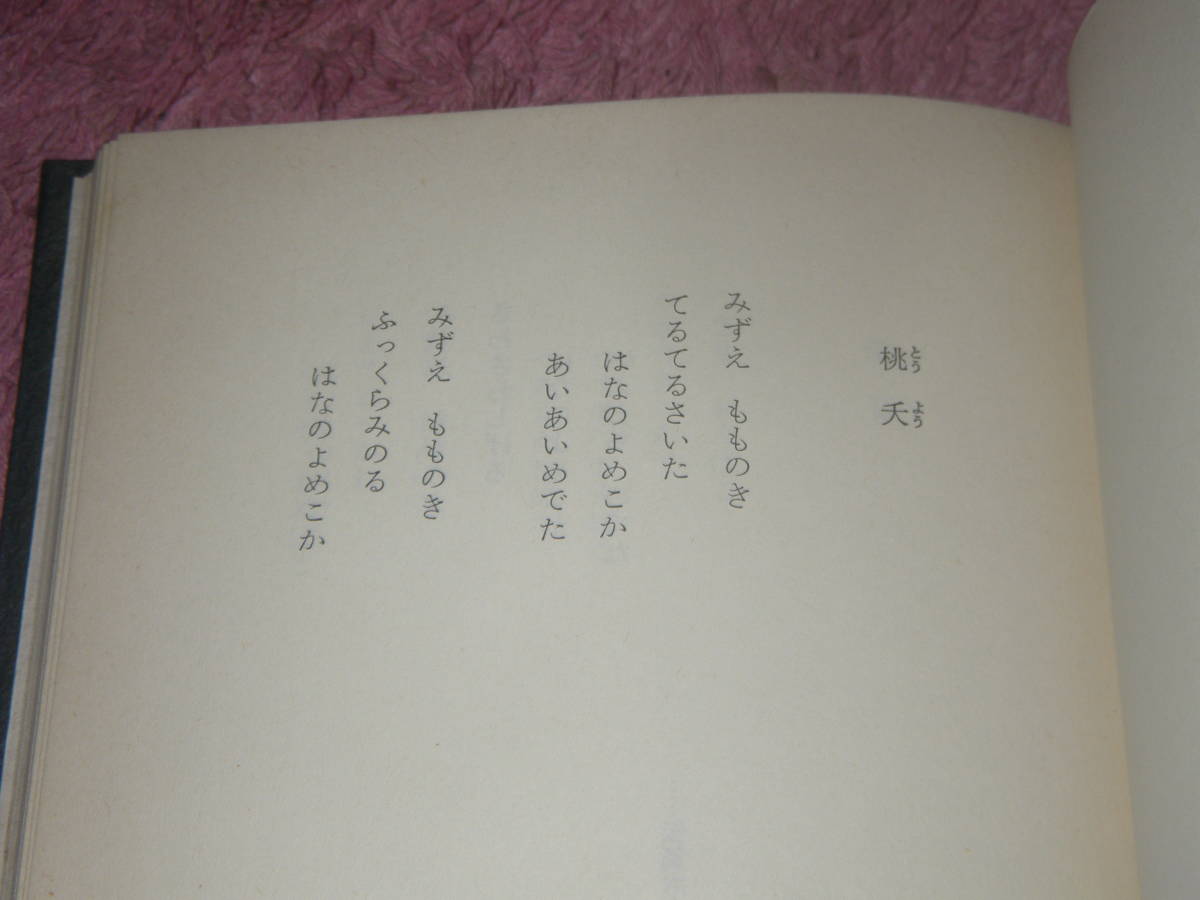 桃夭
とうよう
みずえ　もものき
てるてるさいた
はなのよめこか
あいあいめでた
みずえ　もものき
ふっくらみのる
はなのよめこか